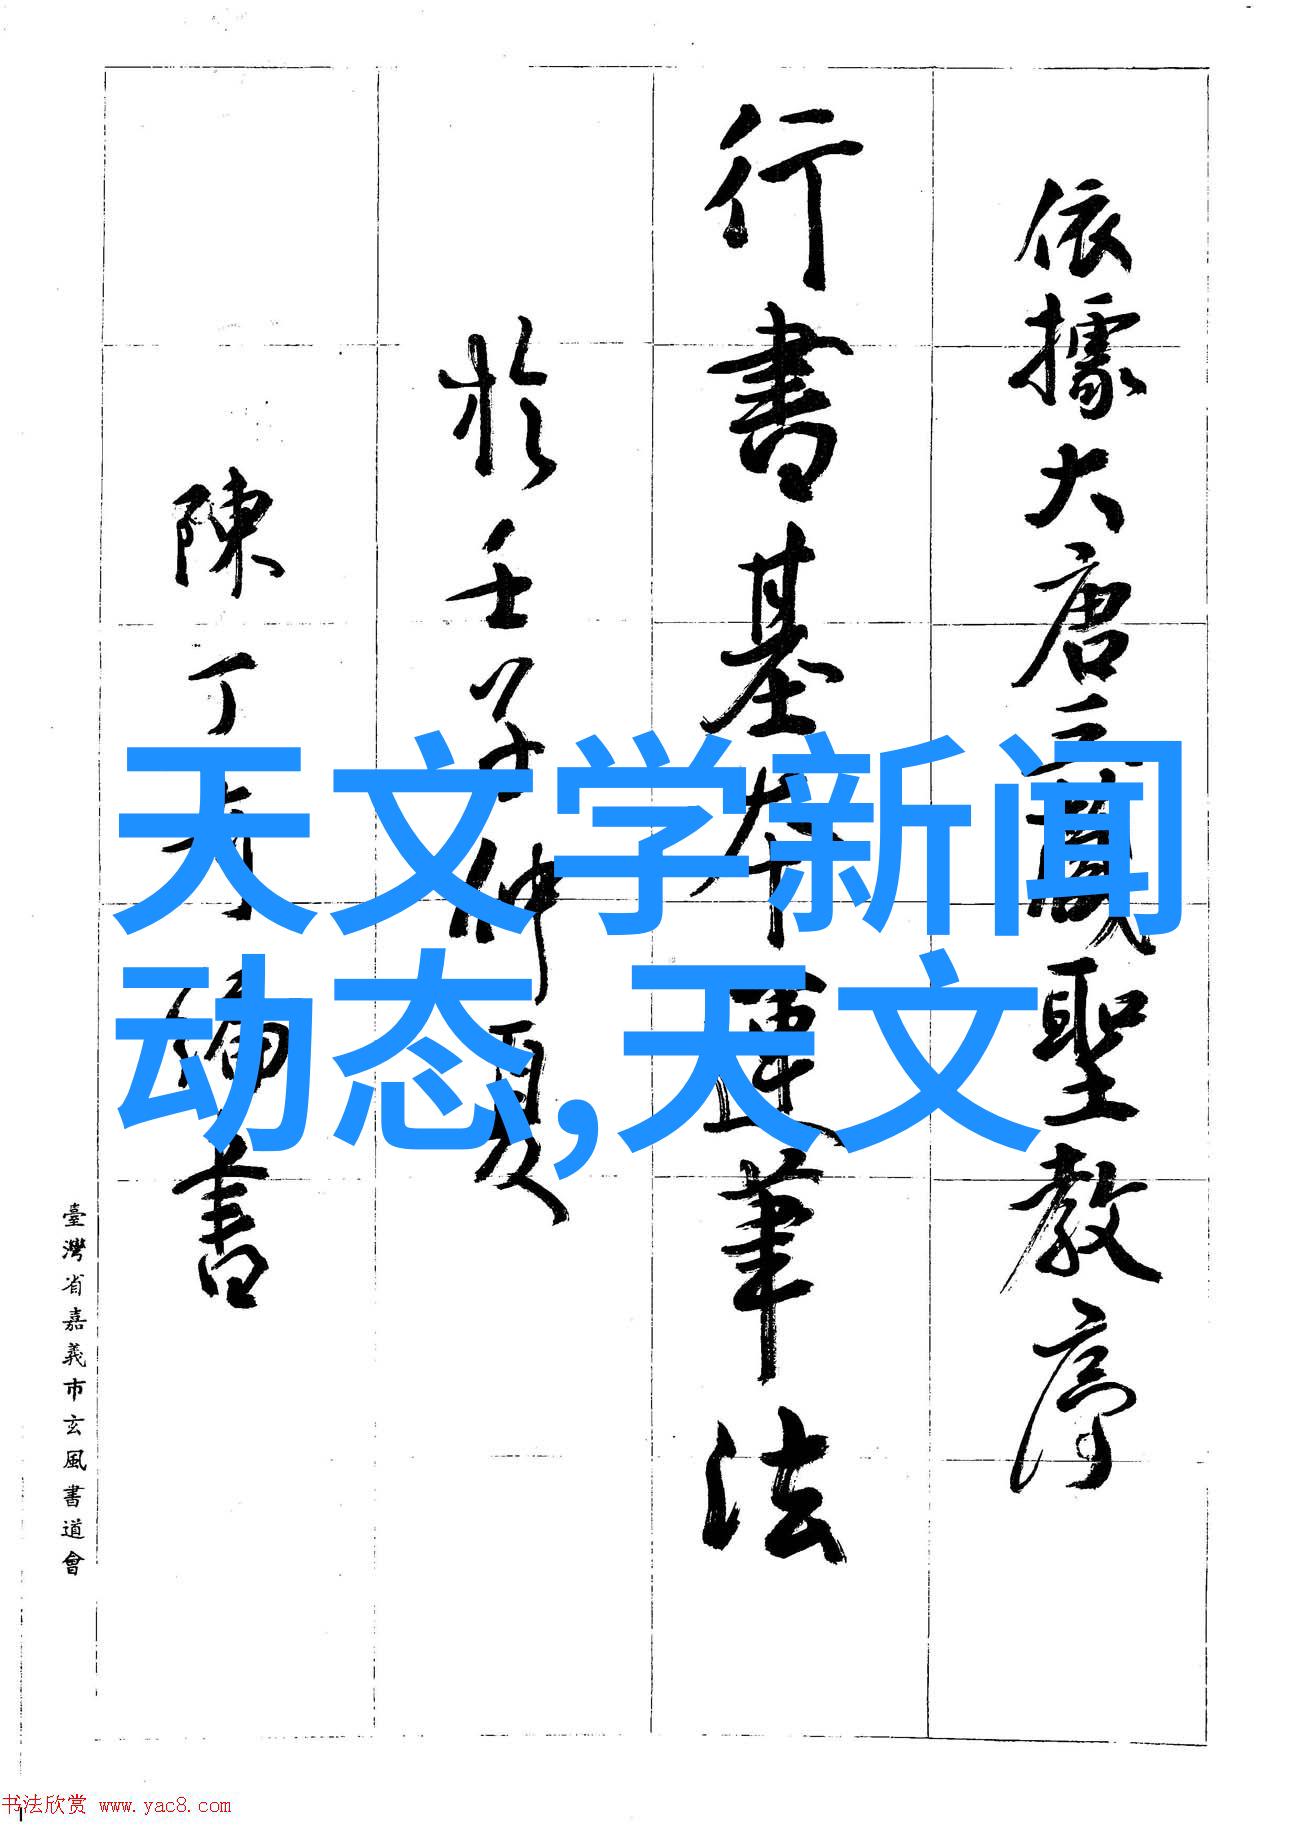 依據大唐三藏聖教序
行書基本運筆法
於壬子仲夏
陳丁奇編書
臺灣省嘉義市玄風書道會
天文学新闻
动态,天文
书法欣赏 www.yac8.com